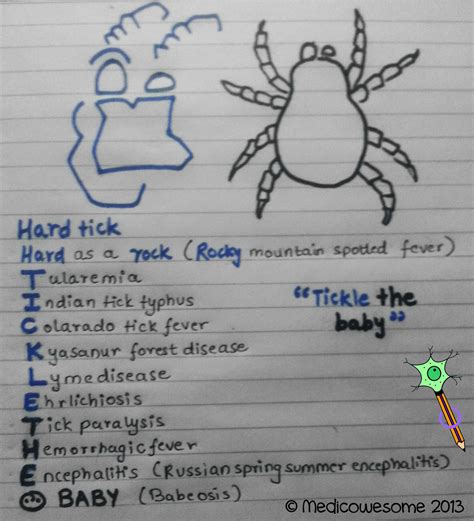 Hard tick
Hard as a rock (Rocky mountain spotted fever)
Tularemia
Indian tick typhus
Colarado tick fever
Kyasanur forest disease
Lyme disease
Ehrlichiosis
Tick paralysis
Hemorrhagic fever
Encephalitis (Russian spring summer encephalitis)
BABY (Babeosis)
"Tickle the
baby"
© Medicowesome 2013